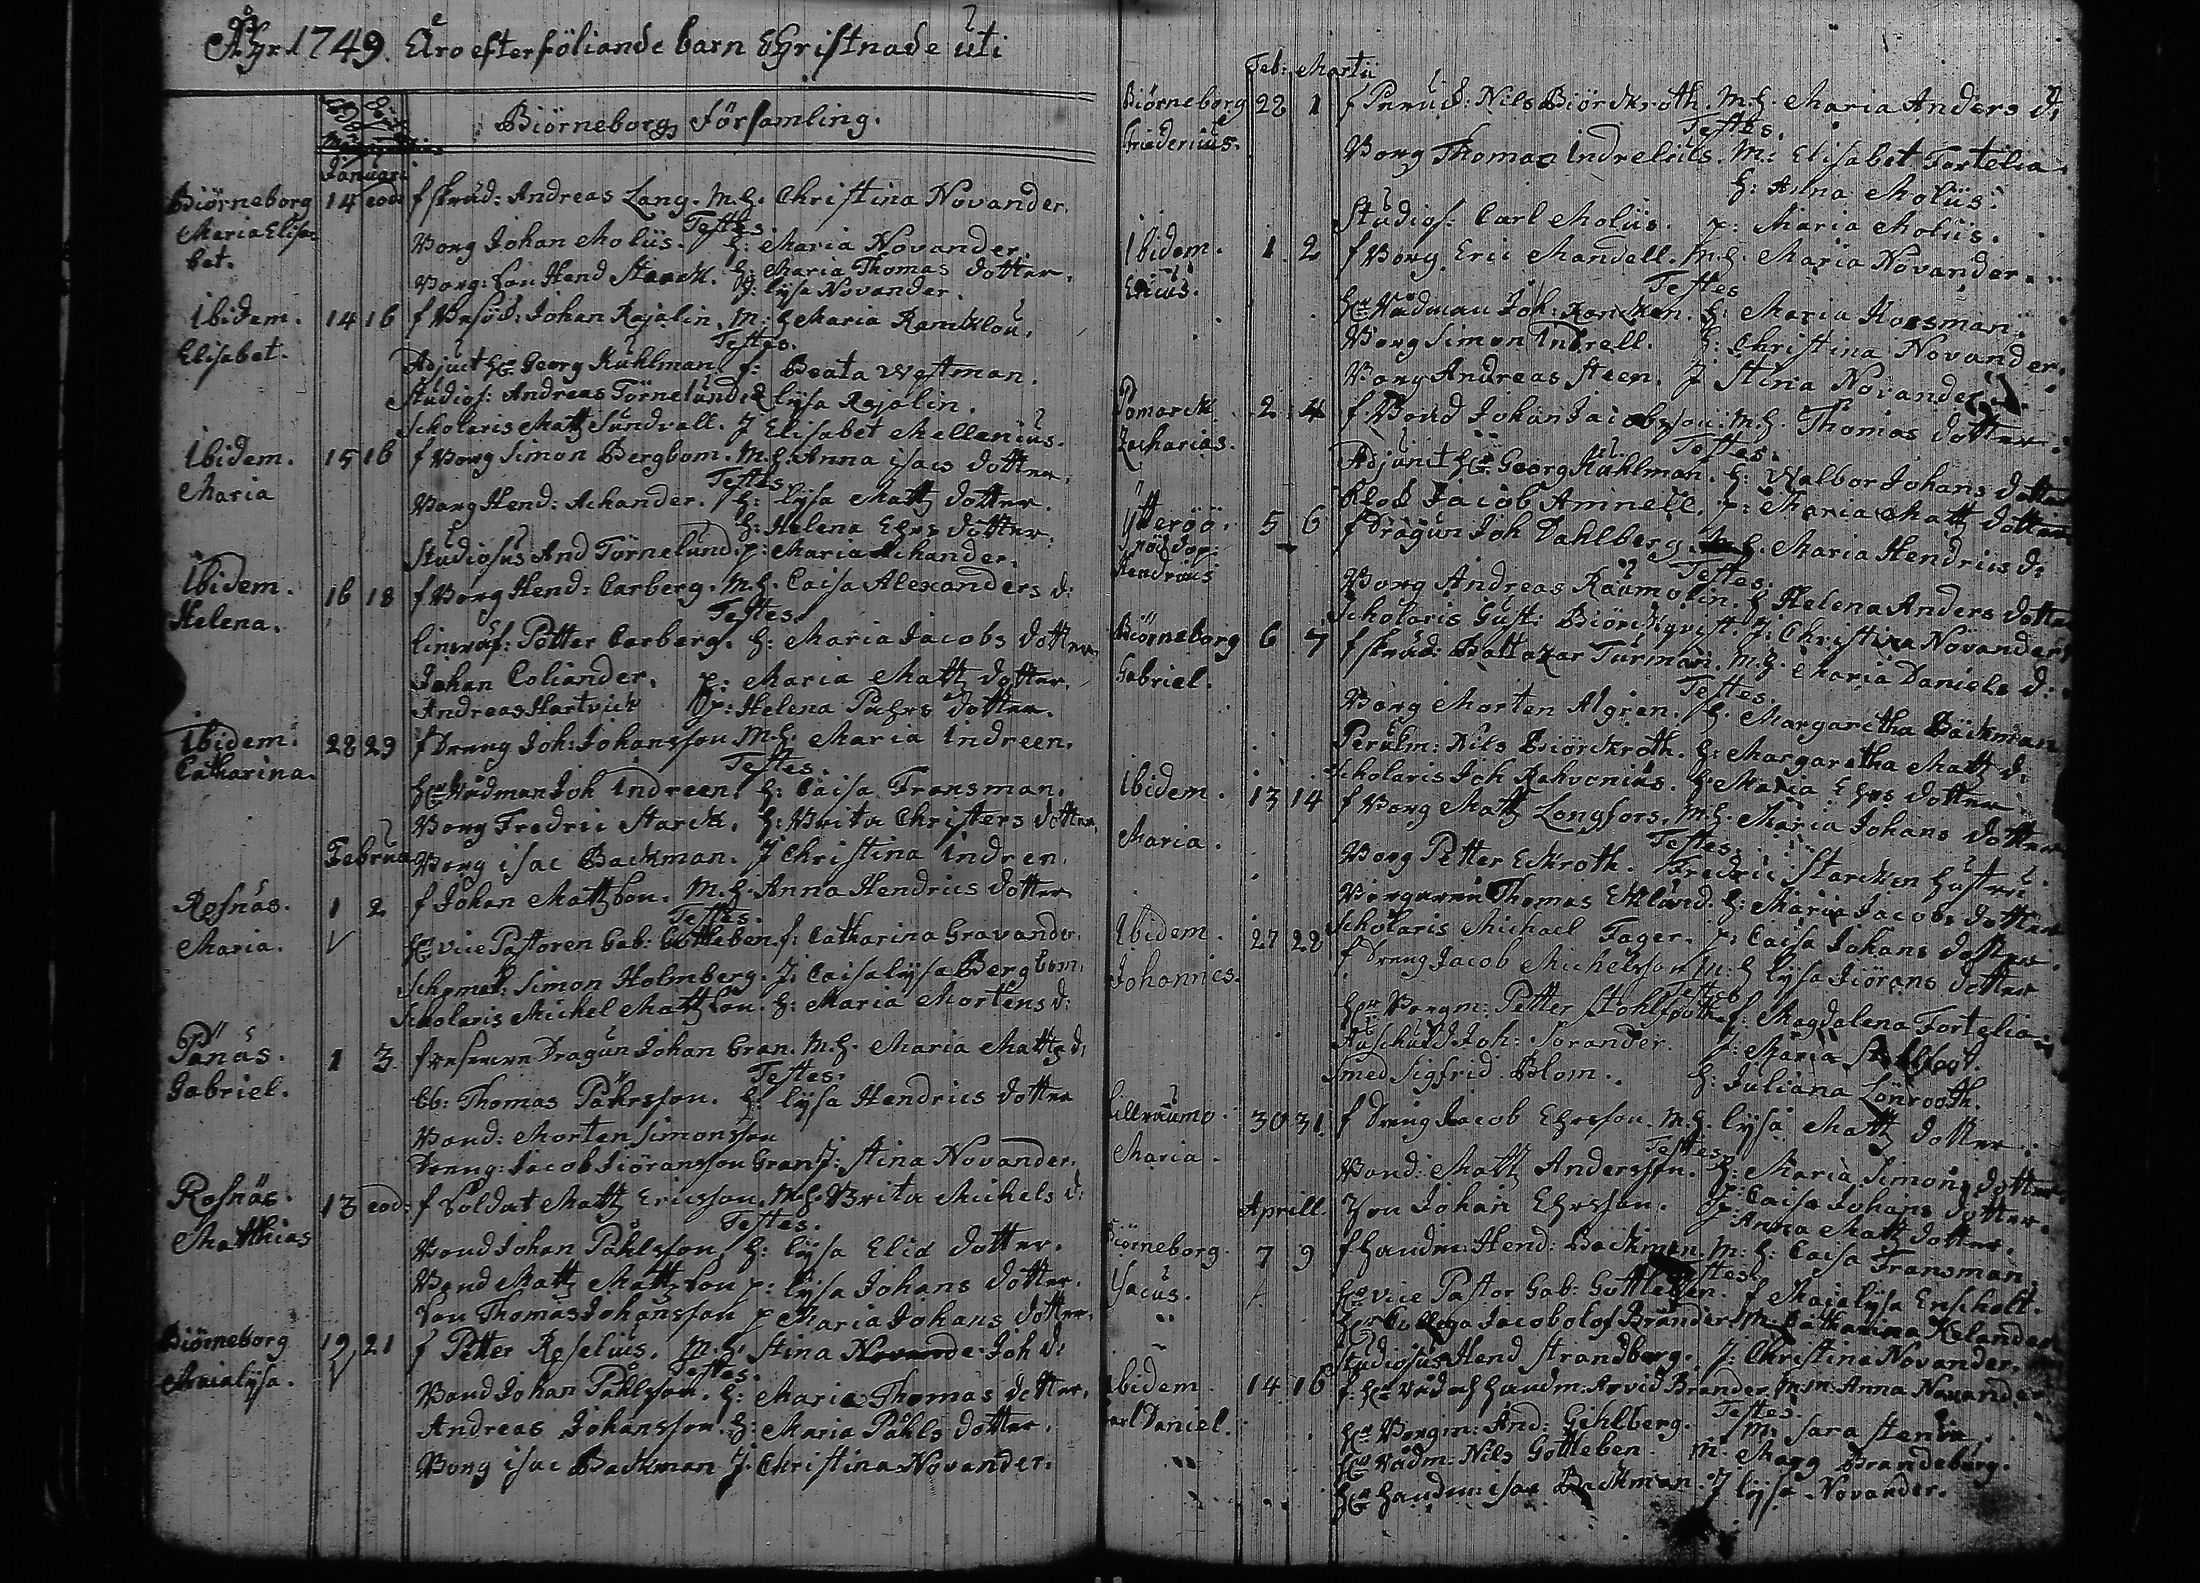 Åhr 1749. Äro efterföliande barn Christnade uti
Biörneborgs Församling.
Januari
Biörneborg 14 eod: f skräd: Andreas Lang. M. h. Christina Novander.
Maria Elisa= Testes.
bet. Borg Johan Moliis. h: Maria Novander.
Borg: Son Hend Starck. h: Maria Thomas dotter.
J: lysa Novander.
Ibidem. 14 16 f Johan Rajalin. M: h Maria Ramklou.
Elisabet. Testes.
Adjuct Hr Georg Kuhlman. f: Beata Westman.
Studios: Andreas Törnelund lysa Rajalin.
Scholaris Matz Sundvall. J Elisabet Mellenius.
Ibidem. 15 16 f Borg Simon Bergbom. M. h: Anna isacs dotter.
Maria Testes
Borg Hend: Achander. h: lysa Matz dotter.
h: Helena Ehrs dotter.
Studiosus And Törnelund. p: Maria Achander.
Ibidem. 16 18 f Borg Hend: Carberg. M. h. Caisa Alexanders d:
Helena. Testes.
Petter Carberg. h: Maria Jacobs dotter.
Johan Coliander. p: Maria Matz dotter.
Andreas Hartvich p: Helena Påhls dotter.
Ibidem. 28 29 f Dreng Joh: Johansson M. h. Maria Indreen.
Catharina. Testes.
Hr Rådman Joh Indreen. h: Caisa Fransman.
Borg Fredric Starck. h: Brita Christers dotter.
Februa Borg isac Backman. J Christina Indren.
Rosnäs. 1 2 f Johan Matzson. M. h. Anna Hendrics dotter
Maria. Testes.
Hr vice Pastoren Gab: Gottleben. f: Catharina Gravander.
Simon Holmberg. J: Caisalysa Bergbom.
Scholaris Michel Matzson. h: Maria Mortens d:
Pånäs. 1 3. f Dragun Johan Gran. M. h. Maria Matts d:
Gabriel. Testes.
Thomas Påhrsson. h: lysa Hendrics dotter
Bond: Morten Simonsson
Dreng: Jacob Jöransson Gran J: Stina Novander.
Rosnäs. 13 eod: f Soldat Matz Ericsson. M. h. Brita Michels d:
Matthias Testes.
Bond Johan Påhlsson. h: lysa Elia dotter.
Bond Matz Matzson p: lysa Johans dotter.
Son Thomas Johansson p Maria Johans dotter.
Biörneborg 19 21 f Petter Roselius. M. h. Stina Joh d:
Maialysa. Testes.
Bond Johan Påhlsson. h: Maria Thomas dotter.
Andreas Johansson. h: Maria Påhls dotter.
Borg isac Backman J. Christina Novander.
Feb: Martii
Biörneborg 28 1 f Nils Biörckroth. M. h. Maria Anders d:
Friedericus. Testes.
Borg Thomas Indrelius. M: Elisabet Fortelia.
h: Anna Moliis.
Studios: Carl Moliis. p: Maria Moliis.
Ibidem. 1 2 f Borg Eric Mandell. M. h. Maria Novander.
Ericus. Testes
Hr Rådman Joh: Rancken. h: Maria Korsman.
Borg Simon Indrell. h: Christina Novander.
Borg Andreas Steen. J Stina Novander.
Pomarck 2 4 f. Bond Johan Jacobsson. M. h. Thomas dotter.
Zacharias. Testes.
Adjunct Hr Georg Kuhlman. h: Walbor Johans dotter
Jacob Aminell. p: Maria Matz dotter
Ytteröö. 5 6 f Dragun Joh Dahlberg. M. h. Maria Hendrics d:
Nöddop: Testes.
Hendricus Borg Andreas Raumolin. h Helena Anders dotter
Scholaris Gust: Biörckqvist. J: Christina Novander.
Biörneborg 6 7 f skräd: Baltazar Turman. M. h. Maria Daniels d:
Gabriel. Testes.
Borg Morten Algren. h. Margaretha Bäckman
Nils Biörckroth. h: Margaretha Matz d:
Scholaris Joh Rahvonius. h: Maria Ehrs dotter
Ibidem. 13 14 f Borg Matz Longfors. M. h. Maria Johans dotter
Maria. Testes.
Borg Petter Eckroth. Fredric Starcken hustru
Borgaren Thomas Ecklund. h: Maria Jacobs dotter
Scholaris Michael Fager. p: Caisa Johans dotter.
Ibidem. 27 28 f Dreng Jacob Michelsson M: h lysa Jörans dotter
Johannes. Testes
Hr Borgm: Petter Stohlfooth. f: Magdalena Fortelia
Joh: Sorander. J: Maria
Smed Sigfrid Blom. h: Juliana Lönrooth.
Lillraumo. 30 31. f Dreng Jacob Ehrsson. M. h. lysa Matz dotter.
Maria. Testes
Bond: Matz Andersson. h: Maria Simons dotter.
Son Johan Ehrsson. p: Caisa Johans dotter.
p: Anna Matz dotter.
Aprill.
Biörneborg. 7 9 f Handm: Hend: Backman. M: h: Caisa Fransman.
Isacus. Testes
Hr vice Pastor Gab: Gottleben. f Maialysa Enscholt.
Hr Collega Jacob olof Brander M Catharina Kelander
Studiosus Hend Strandberg. J: Christina Novander.
Ibidem. 14 16 f: Hr Råd och Handm: Arvid Brander M: m: Anna Novander
Carl Daniel. Testes.
Hr Borgm: And: Gihlberg. M: Sara Stenia.
Hr Rådm: Nils Gottleben. M. Marg Brandeburg.
Hr Handm: isac Backman. J lysa Novander.